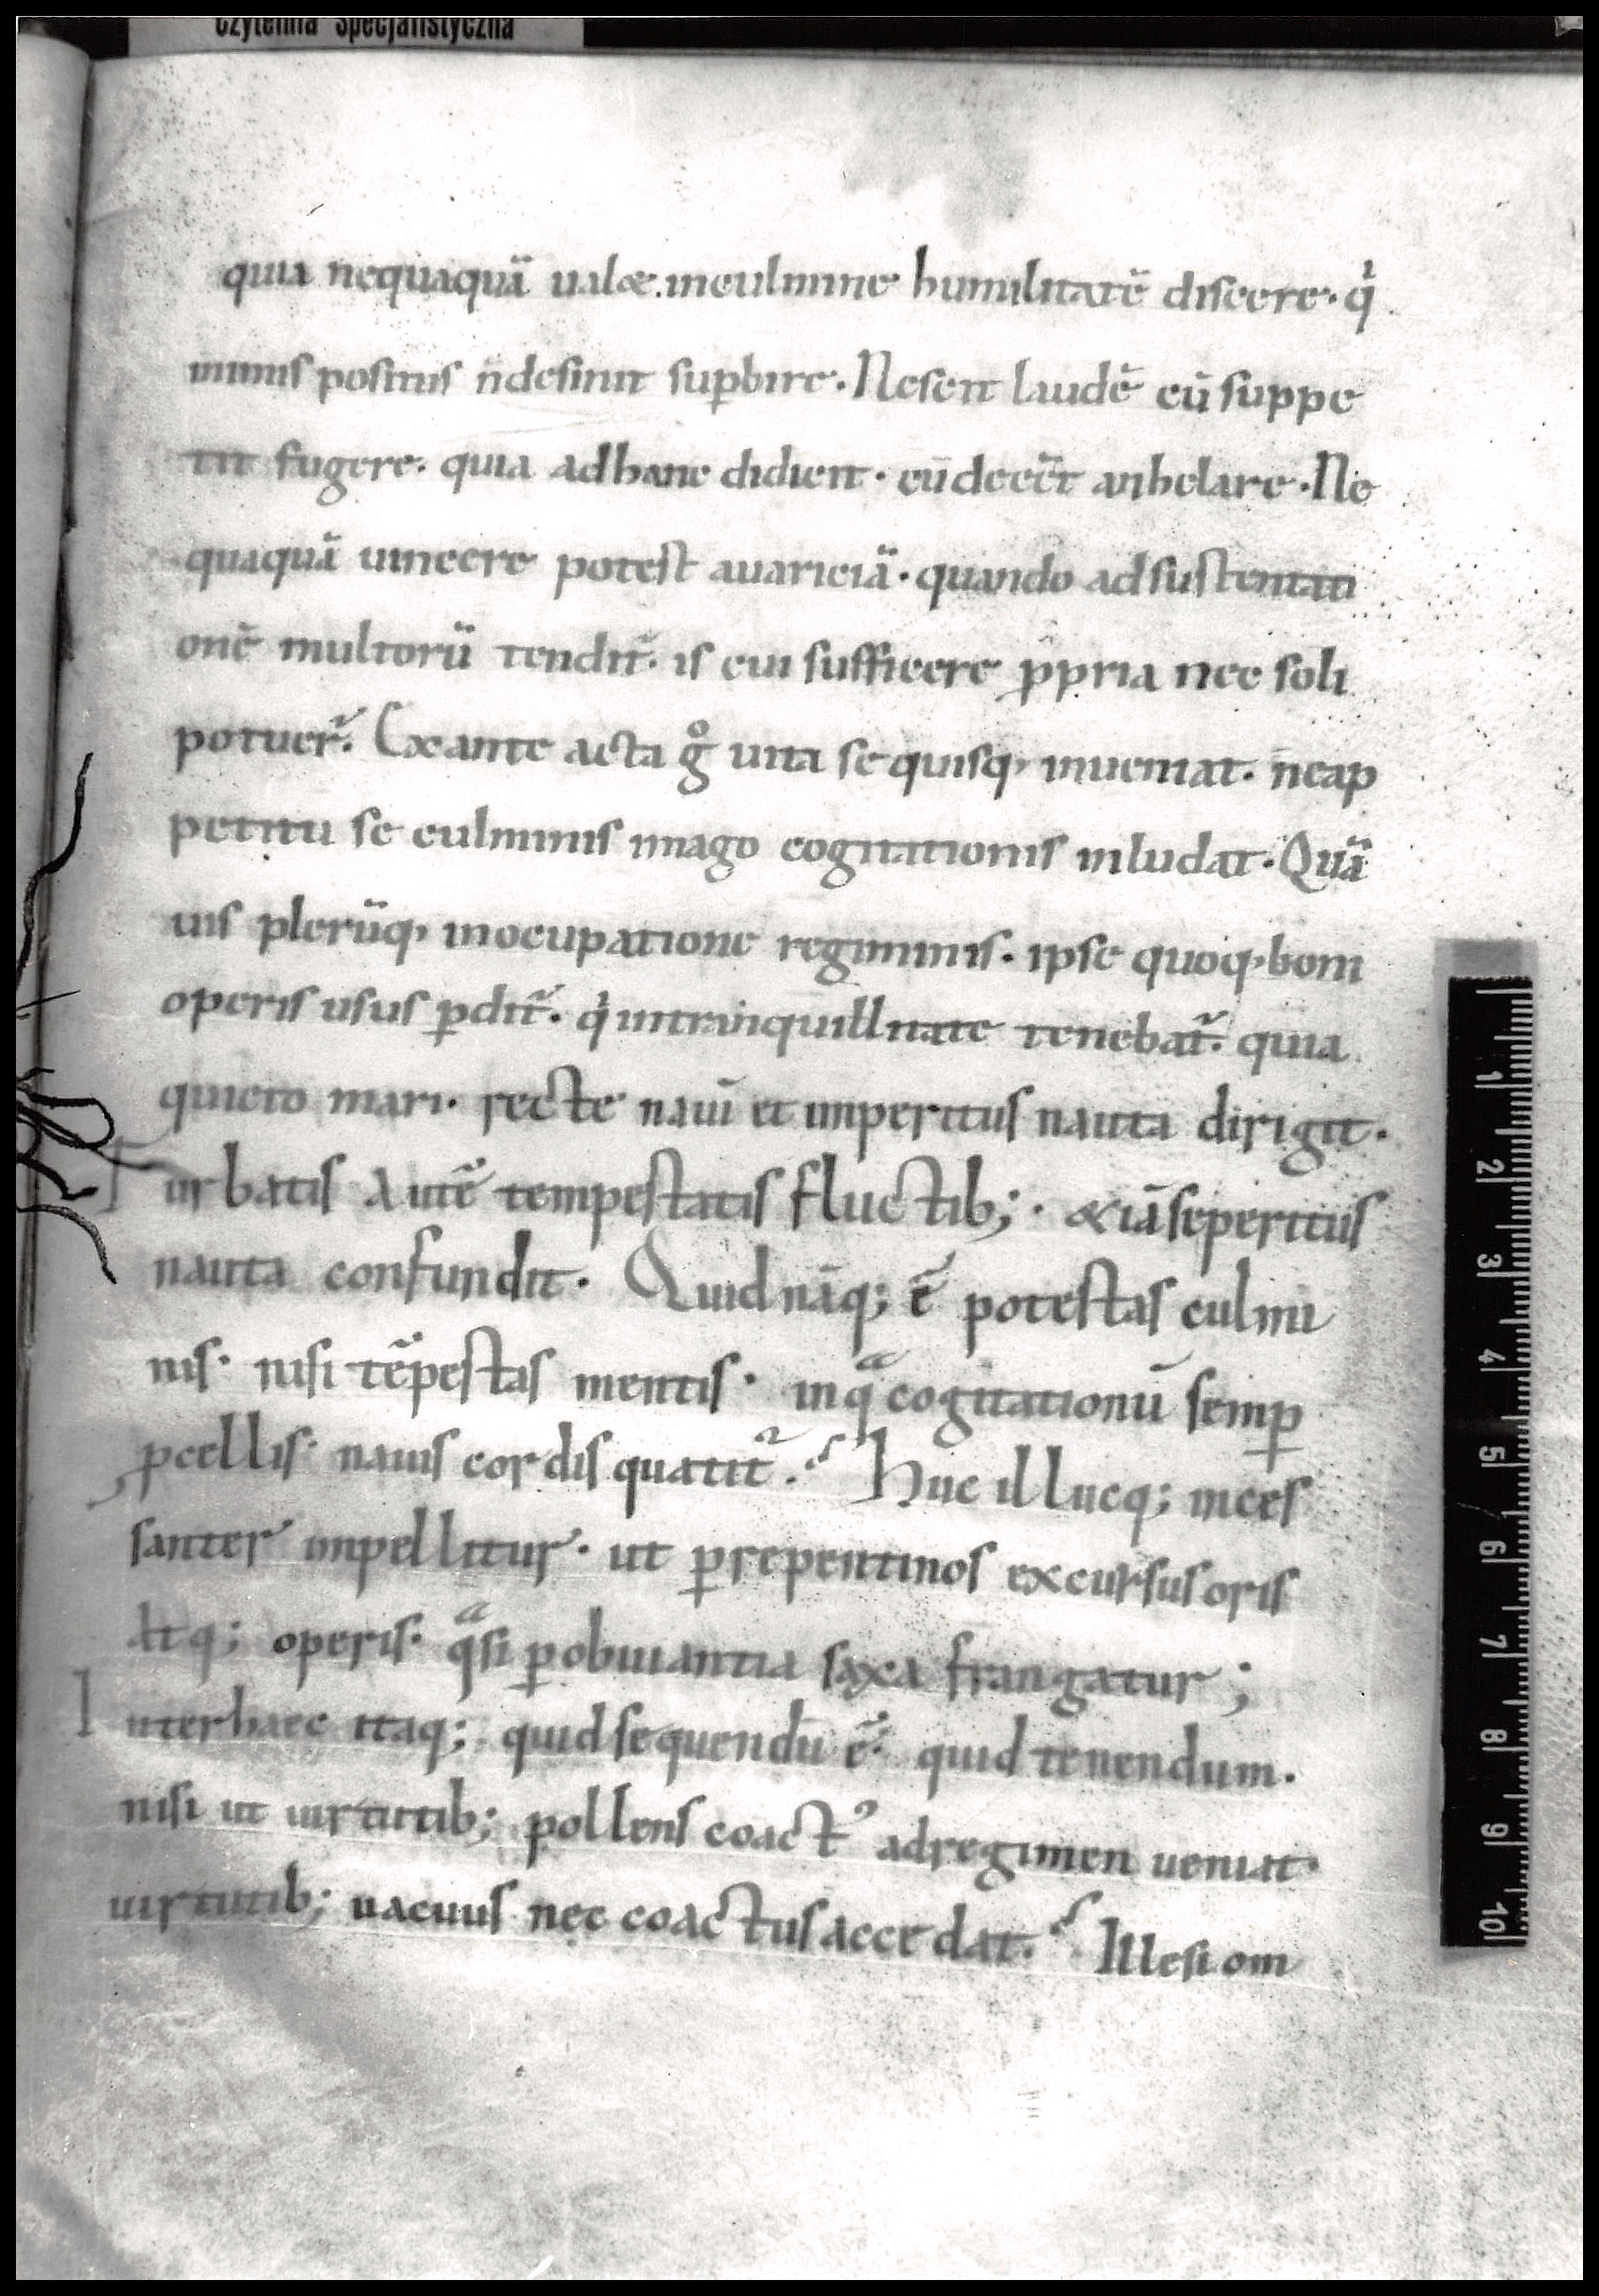 czytelnia specjalistyczna
quia nequaquā ualæ. inculmine humilitatē discere. qͥ
inimis positus n̄desinit suꝑbire. Nescit laudē cū suppe
tit fugere. quia adhanc didicit. cū deēēt anhelare. Ne
quaquā uincere potest auariciā. quando adsustentati
onē multorū tendit᷑. is cui sufficere ꝓpria nec soli
potuer̄. Exante acta gͦ uita se quisq; inueniat. neap
petitu se culminis imago cogitationis inludat. Quā
uis plerūq; inocupatione regiminis. ipse quoq; boni
operis usus ꝑdit᷑. qͥ intranquillitate tenebat᷑. quia
quieto mari. recte nauī et inperitus nauta dirigit.
Turbatis autē tempestatis fluctib; . &iā seperitus
nauta confundit. Quid nāq; ē potestas culmi
nis. nisi tēpestas mentis. inqͣ cogitationū semꝑ
ꝓcellis. nauis cordis quatit᷑. Huc illucq; inces
santer inpellitur. ut ꝑrepentinos excursus oris
atq; operis. qͣsi ꝑobuiantia saxa frangatur;
Interhaec itaq; quid sequendū ē. quid tenendum.
nisi ut uirtutib; pollens coactꝰ adregimen ueniat.
uirtutib; uacuus nec coactus accedat. Ille si om
1
2
3
4
5
6
7
8
9
10